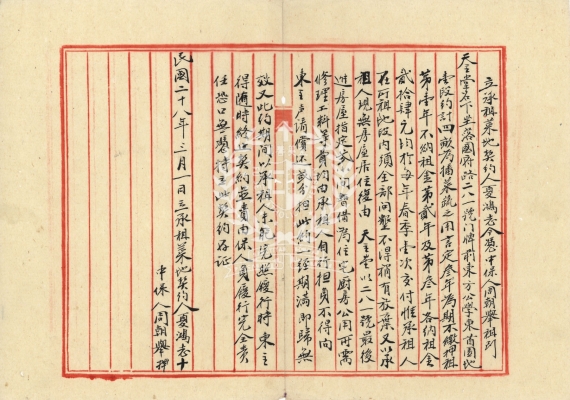 立承租菜地契約人夏鴻志今憑中保人周朝舉租到
天主堂名下坐落國府路二八一號門牌前東方公學東首園地
壹段約計四畝為播菜疏之用言定叁年為期不繳押租
第壹年不納租金第貳年及第叁年各納租金
貳拾肆元均於每年春季壹次交付惟承租人
在所租地段內須全部開墾不得稍有放棄又以承
租人現無房屋居住復由 天主堂以二八一號最後
進房屋指定 間暫借為住宅廚房公用所需
修理工料等費均由承租人自行担負不得向
東主聲請償還或分担此約一經期滿即歸無
效又此約期間以承租人未能完照履行時東主
得隨時終止契約並責內保人負履行完全責
任恐口無憑特立此契約存証
民國二十八年 三月一日立承租菜地契約人夏鴻志十
中保人周朝舉押